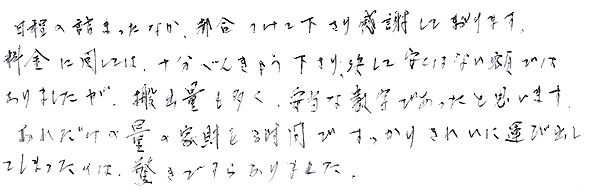 日程の詰まったなか、都合つけて下さり感謝しております。
料金に関しては、十分べんきょう下さり、決して安くはない額では
ありましたが、搬出量も多く、妥当な数字であったと思います。
あれだけの量の家財を3時間ですっかりきれいに運び出し
てしまったのは、驚きですらありました。